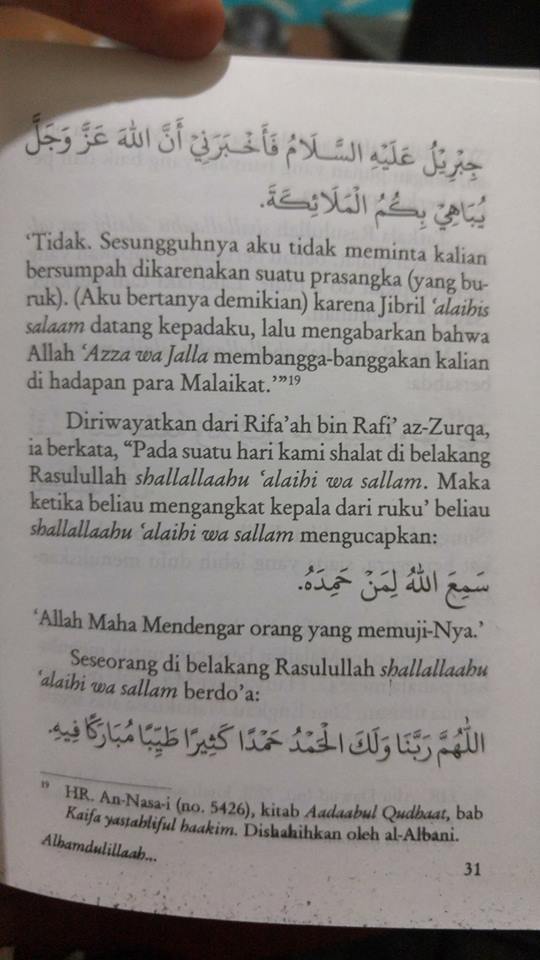 جِبْرِيْلُ عَلَيْهِ السَّلَامُ فَأَخْبَرَنِيْ أَنَّ اللهَ عَزَّ وَجَلَّ
يُبَاهِيْ بِكُمُ الْمَلَائِكَةَ.
‘Tidak. Sesungguhnya aku tidak meminta kalian
bersumpah dikarenakan suatu prasangka (yang bu-
ruk). (Aku bertanya demikian) karena Jibril ‘alaihis
salaam datang kepadaku, lalu mengabarkan bahwa
Allah ‘Azza wa Jalla membangga-banggakan kalian
di hadapan para Malaikat.’”19
Diriwayatkan dari Rifa’ah bin Rafi’ az-Zurqa,
ia berkata, “Pada suatu hari kami shalat di belakang
Rasulullah shallallaahu ‘alaihi wa sallam. Maka
ketika beliau mengangkat kepala dari ruku’ beliau
shallallaahu ‘alaihi wa sallam mengucapkan:
سَمِعَ اللهُ لِمَنْ حَمِدَهُ.
‘Allah Maha Mendengar orang yang memuji-Nya.’
Seseorang di belakang Rasulullah shallallaahu
‘alaihi wa sallam berdo’a:
اَللّٰهُمَّ رَبَّنَا وَلَكَ الْحَمْدُ حَمْدًا كَثِيْرًا طَيِّبًا مُبَارَكًا فِيْهِ.
19 HR. An-Nasa-i (no. 5426), kitab Aadaabul Qudhaat, bab
Kaifa yastahliful haakim. Dishahihkan oleh al-Albani.
Alhamdulillaah...
31